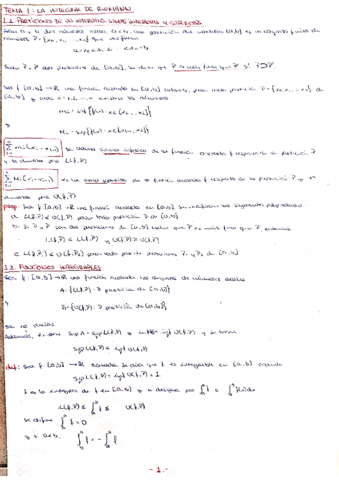 TEMA 1: LA INTEGRAL DE RIEMANN
1.1. PARTICIONES DE UN INTERVALO. SUMAS INFERIORES Y SUPERIORES
Sean a y b dos números reales, a<b. Una partición del intervalo [a,b] es un conjunto finito de
números P={x₀, x₁, ... xₙ} que
a = x₀ < x₁ < ... < xₙ = b
Sean P, P dos particiones de [a,b], se dice que P es más fina que P si P⊃P.
Sea f: [a,b] → R una función acotada en [a,b]. para cada partición P={x₀, x₁,...xₙ} de
[a,b] y cada i=1,2,...n los números
mᵢ = inf {f(x): x ∈ [xᵢ₋₁, xᵢ]}
y
Mᵢ = sup {f(x): x ∈ [xᵢ₋₁, xᵢ]}
Σ mᵢ(xᵢ - xᵢ₋₁) se llama suma inferior de la función acotada f respecto de la partición P
y se denota por L(f,P)
Σ Mᵢ(xᵢ - xᵢ₋₁) es la suma superior de la función acotada f respecto de la partición P y se
denota por U(f,P)
prop. Sea f: [a,b] → R una función acotada en [a,b]. Se verifican las siguientes propiedades:
a. L(f,P) ≤ U(f,P) para toda partición P de [a,b]
b. Si P y P son dos particiones de [a,b] tales que P es más fina que P, entonces
L(f,P) ≤ L(f,P) y U(f,P) ≥ U(f,P)
c. L(f,P₁) ≤ U(f,P₂) para todo par de particiones P₁ y P₂ de [a,b].
1.2. FUNCIONES INTEGRABLES
Sea f: [a,b] → R una función acotada. Los conjuntos de números reales
A={L(f,P): P partición de [a,b]}
y
B={U(f,P): P partición de [a,b]}
son no vacíos.
Además, sup A = sup L(f,P) inf B = inf U(f,P) y se tiene
sup L(f,P) ≤ inf U(f,P)
def: Sea f: [a,b] → R acotada. Se dice que f es integrable en [a,b] cuando
sup L(f,P) = inf U(f,P) = I.
I es la integral de f en [a,b] y se designa por ∫ f o ∫ f(x)dx
L(f,P) ≤ ∫ f ≤ U(f,P)
Se define ∫ f = 0
y si a<b, ∫ f = - ∫ f
- 1 -